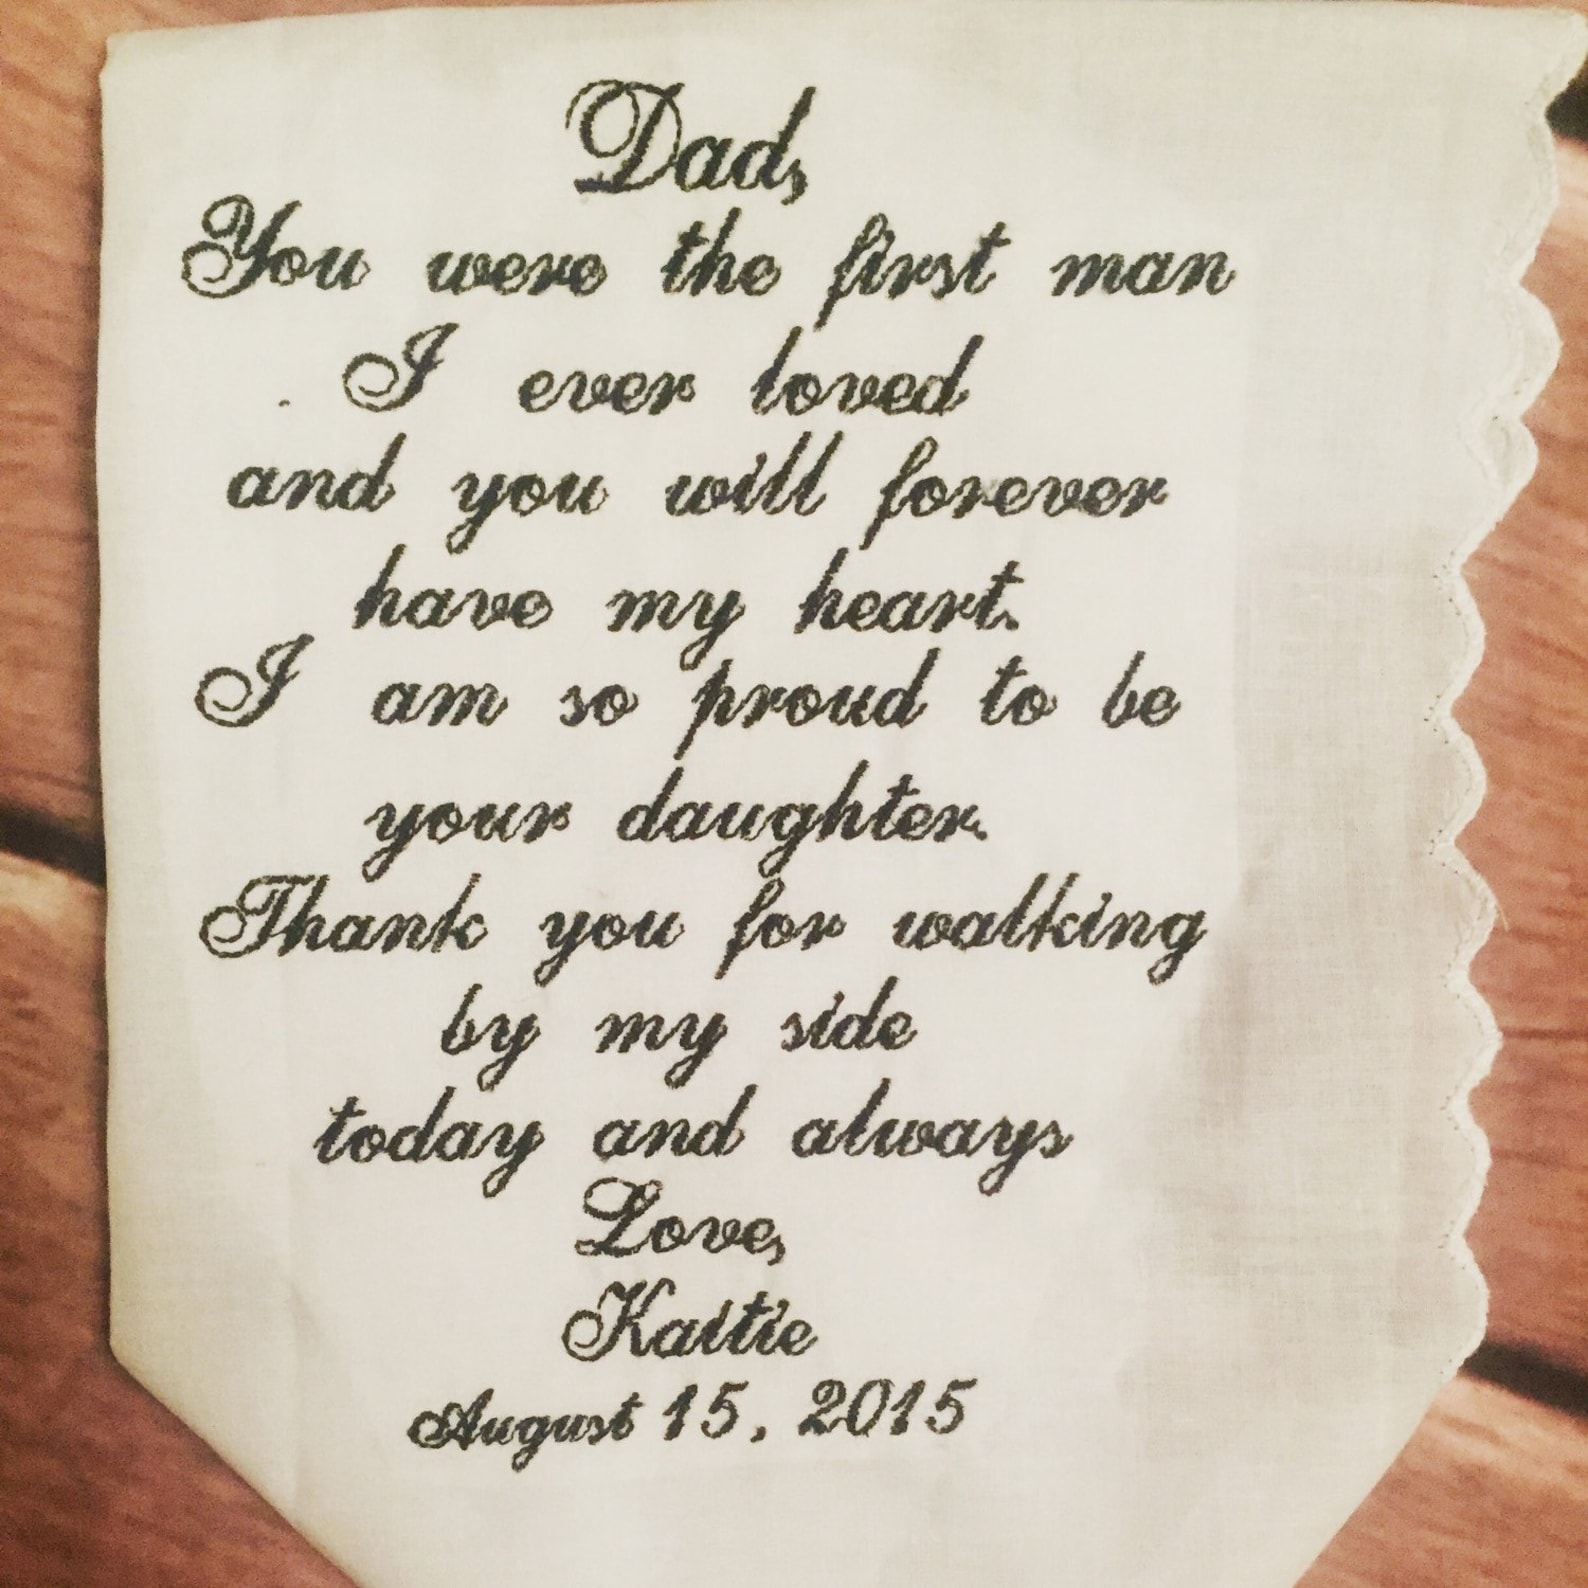 Dad,
You were the first man
I ever loved
and you will forever
have my heart.
I am so proud to be
your daughter.
Thank you for walking
by my side
today and always
Love,
Kaitie
August 15, 2015